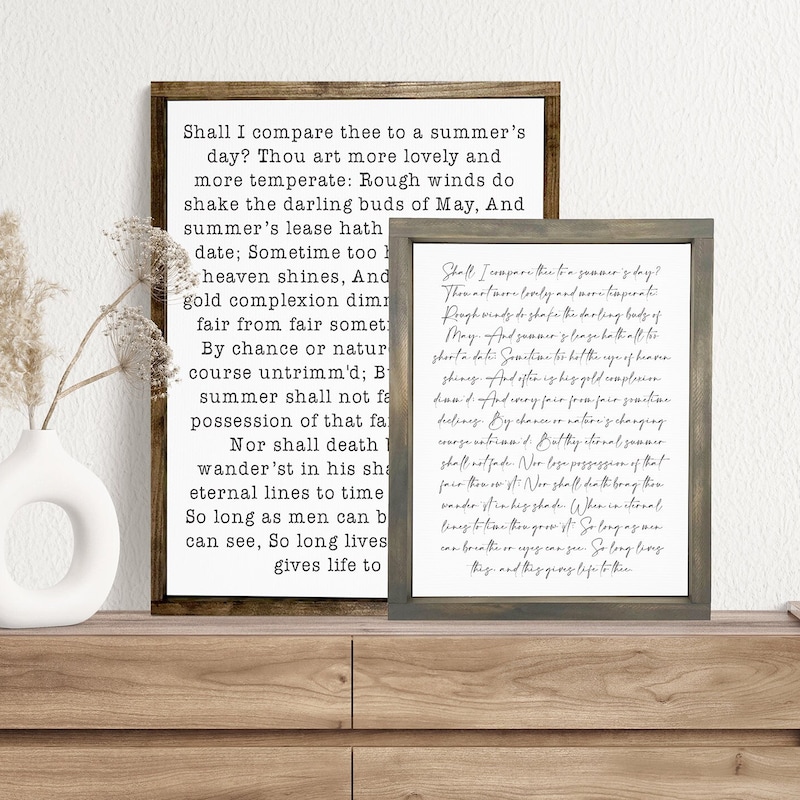 Shall I compare thee to a summer's
day? Thou art more lovely and
more temperate: Rough winds do
shake the darling buds of May, And
summer's lease hath
date; Sometime too
heaven shines, And
gold complexion
fair from fair
By chance or
course untrimm'd;
summer shall not
possession of that
Nor shall death
wander'st in his
eternal lines to time
So long as men can
can see, So long lives
gives life to
Shall I compare thee to a summer's day?
Thou art more lovely and more temperate:
Rough winds do shake the darling buds of
May, And summer's lease hath all too
short a date; Sometime too hot the eye of heaven
shines, And often is his gold complexion
dimm'd; And every fair from fair sometime
declines, By chance or nature's changing
course untrimm'd; But thy eternal summer
shall not fade, Nor lose possession of that
fair thou ow'st; Nor shall death brag thou
wander'st in his shade, When in eternal
lines to time thou grow'st; So long as men
can breathe or eyes can see, So long lives
this, and this gives life to thee.